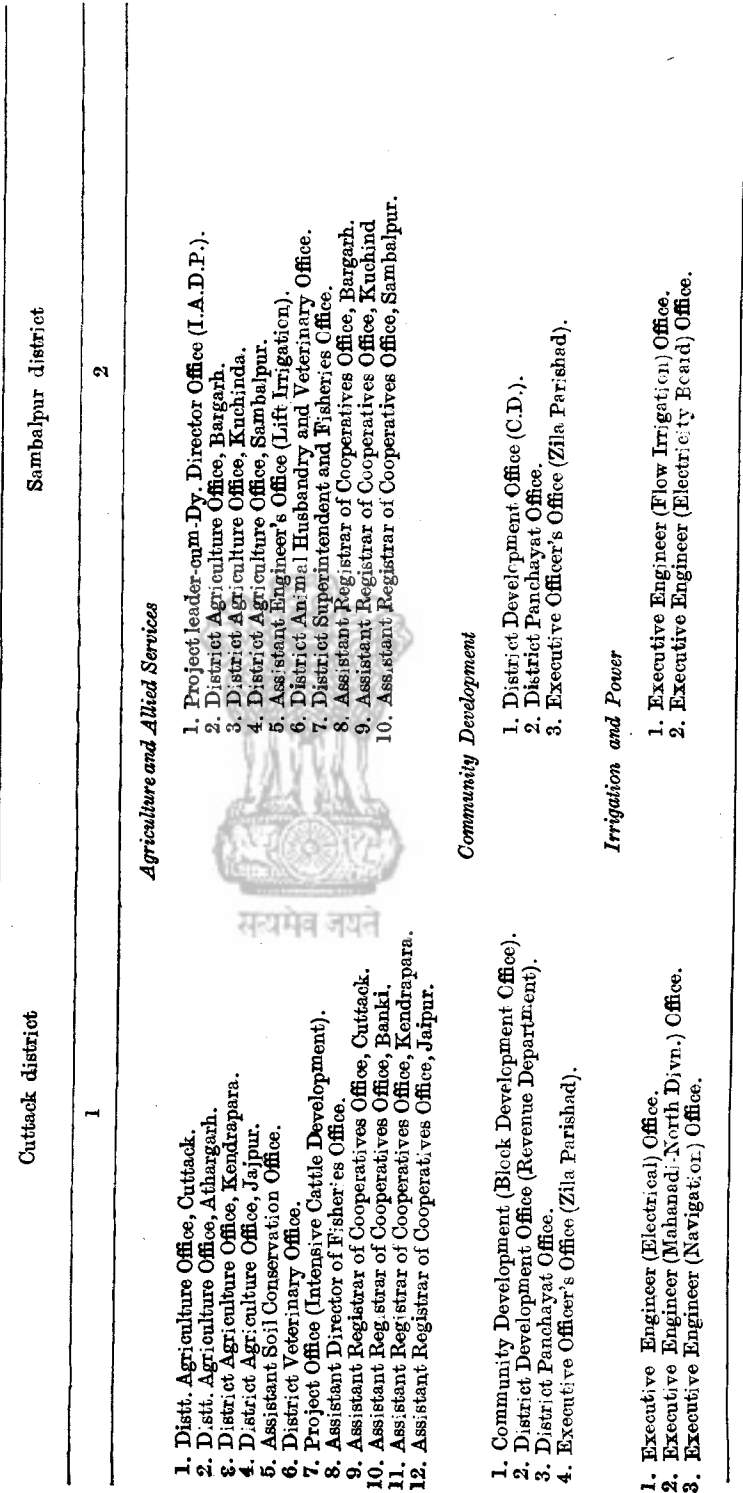 Cuttack district
Sambalpur district
1
2
Agriculture and Allied Services
1. Distt. Agriculture Office, Cuttack.
2. Distt. Agriculture Office, Athargarh.
3. District Agriculture Office, Kendrapara.
4. District Agriculture Office, Jajpur.
5. Assistant Soil Conservation Office.
6. District Veterinary Office.
7. Project Office (Intensive Cattle Development).
8. Assistant Director of Fisheries Office.
9. Assistant Registrar of Cooperatives Office, Cuttack.
10. Assistant Registrar of Cooperatives Office, Banki.
11. Assistant Registrar of Cooperatives Office, Kendrapara.
12. Assistant Registrar of Cooperatives Office, Jaipur.
1. Project leader-cum-Dy. Director Office (I.A.D.P.).
2. District Agriculture Office, Bargarh.
3. District Agriculture Office, Kuchinda.
4. District Agriculture Office, Sambalpur.
5. Assistant Engineer's Office (Lift Irrigation).
6. District Animal Husbandry and Veterinary Office.
7. District Superintendent and Fisheries Office.
8. Assistant Registrar of Cooperatives Office, Bargarh.
9. Assistant Registrar of Cooperatives Office, Kuchind
10. Assistant Registrar of Cooperatives Office, Sambalpur.
सत्यमेव जयते
Community Development
1. Community Development (Block Development Office).
2. District Development Office (Revenue Department).
3. District Panchayat Office.
4. Executive Officer's Office (Zila Parishad).
1. District Development Office (C.D.).
2. District Panchayat Office.
3. Executive Officer's Office (Zila Parishad).
Irrigation and Power
1. Executive Engineer (Electrical) Office.
2. Executive Engineer (Mahanadi-North Divn.) Office.
3. Executive Engineer (Navigation) Office.
1. Executive Engineer (Flow Irrigation) Office.
2. Executive Engineer (Electricity Board) Office.